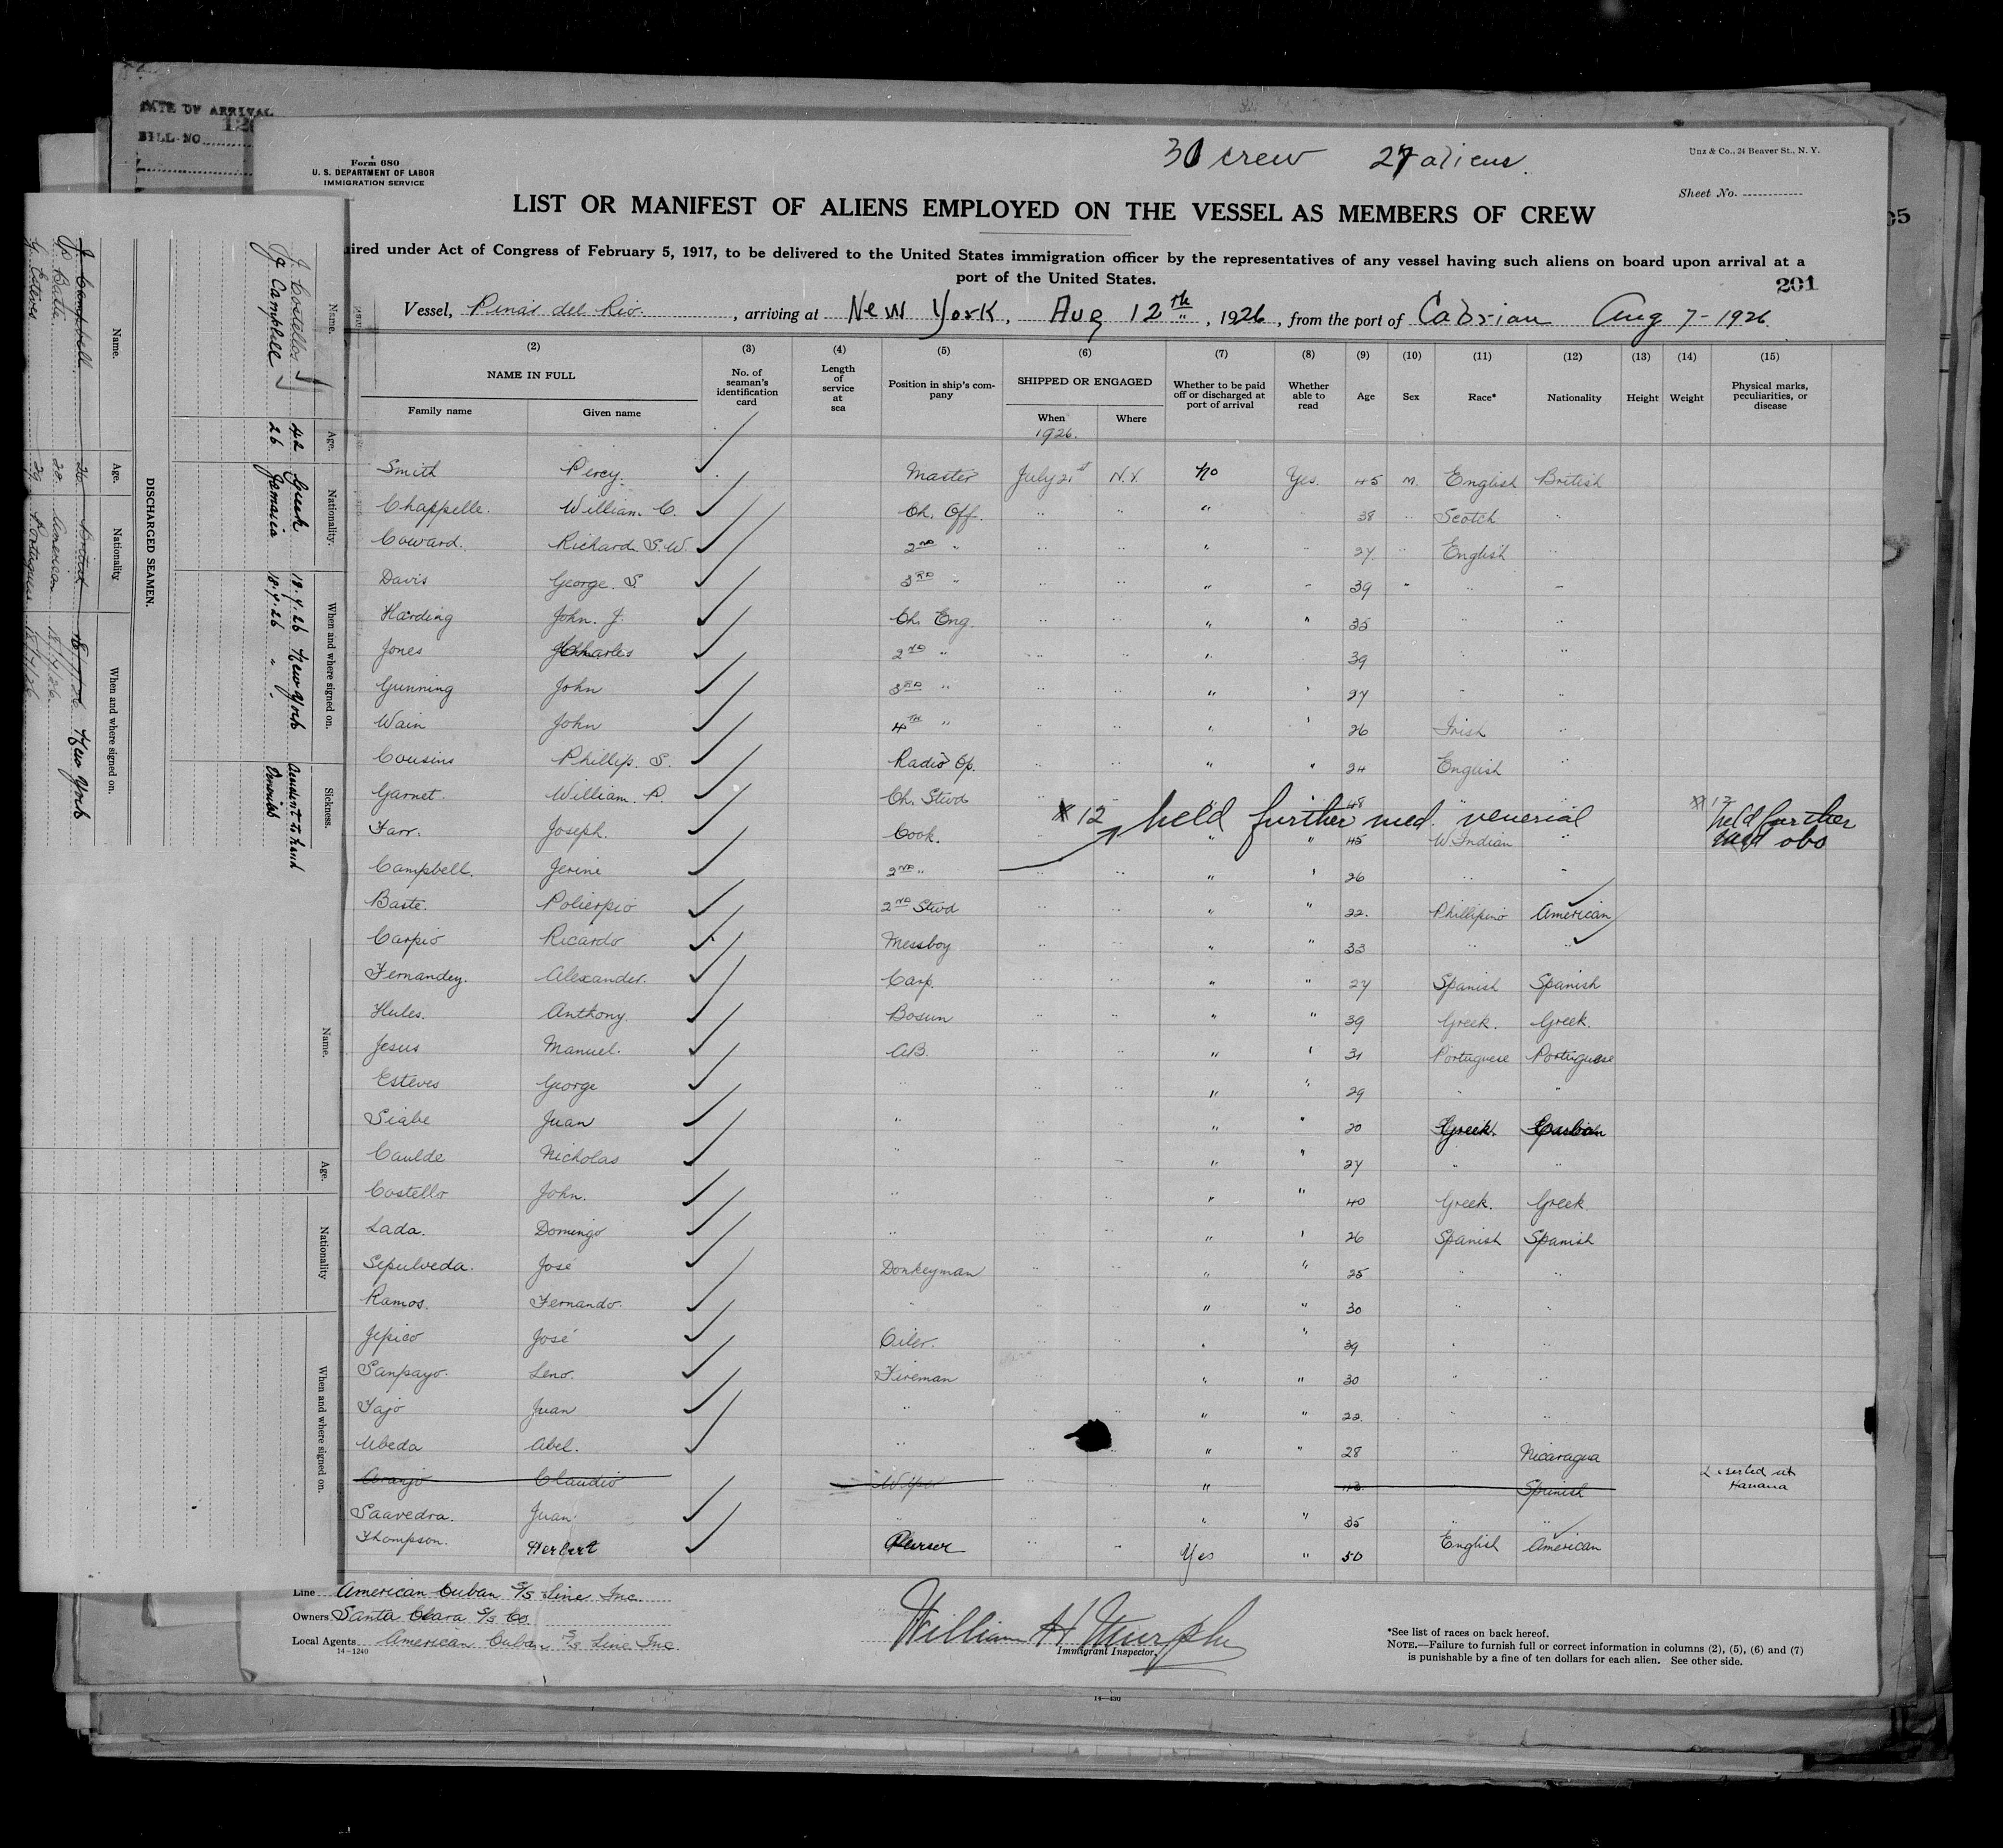 DATE OF ARRIVAL
BILL NO
Form 680
U. S. DEPARTMENT OF LABOR
IMMIGRATION SERVICE
30 crew 27 aliens.
Unz & Co., 24 Beaver St., N. Y.
Sheet No.
LIST OR MANIFEST OF ALIENS EMPLOYED ON THE VESSEL AS MEMBERS OF CREW
ired under Act of Congress of February 5, 1917, to be delivered to the United States immigration officer by the representatives of any vessel having such aliens on board upon arrival at a
port of the United States.
201
Vessel, Pinar del Rio, arriving at New York, Aug 12th, 1926, from the port of Aug 7-1926
(2) (3) (4) (5) (6) (7) (8) (9) (10) (11) (12) (13) (14) (15)
NAME IN FULL No. of seaman's identification card Length of service at sea Position in ship's company SHIPPED OR ENGAGED Whether to be paid off or discharged at port of arrival Whether able to read Age Sex Race* Nationality Height Weight Physical marks, peculiarities, or disease
Family name Given name When Where
1926.
Smith Percy. Master July 21st N.Y. No Yes. 45 M. English British
Chappelle. William. C. Ch. Off. " " " 38 " Scotch "
Coward. Richard. S.W. 2ND " " " " " 27 " English "
Davis George. S 3RD " " " " " 39 " " "
Harding John. J. Ch. Eng. " " " " 35 " "
Jones Charles 2ND " " " " 39 " "
Gunning John 3RD " " " " " 27 " "
Wain John 4TH " " " " " 26 Irish "
Cousins Phillip. S. Radio Op. " " " " 24 English "
Garnet. William. P. Ch. Stwd 48
#12 held further med. venerial
#12 held further med obs
Farr. Joseph. Cook. " " 45 W. Indian "
Campbell. Jerine 2ND " " " " " 26 " "
Baste. Policrpio 2ND Stwd " " " " 22. Phillipino American
Carpio Ricardo Messboy " " " " 33 " "
Fernandez. Alexander. Carp. " " " " 27 Spanish Spanish
Hules. Anthony. Bosun " " " " 39 Greek. Greek.
Jesus Manuel. AB. " " " " 31 Portuguese Portuguese
Esteves George " " " " " 29 " "
Siabe Juan " " " " " 20 Greek.
Caulde Nicholas " " " " " 27 " "
Costello John. " " " " " 40 Greek. Greek
Lada. Domingo " " " " " 26 Spanish Spanish
Sepulveda. José Donkeyman " " " " 25 " "
Ramos. Fernando. " " " " " 30 " "
José Oiler. " " " " 39 " "
Sanpayo. Leno. Fireman " " " 30 " "
Juan " " " " 22. " "
Ubeda Abel. " " " " 28 " Nicaragua
Aranjo Claudio Wiper " " " Spanish Deserted at Havana
Saavedra. Juan " " " " " 35 " "
Thompson. Herbert Purser " " Yes " 50 English American
Line American Cuban S/S Line Inc.
Owners Santa Clara S/S Co
Local Agents American Cuban S/S Line Inc.
14-1240
William H Murphy
Immigrant Inspector.
*See list of races on back hereof.
NOTE.—Failure to furnish full or correct information in columns (2), (5), (6) and (7)
is punishable by a fine of ten dollars for each alien. See other side.
14-430
DISCHARGED SEAMEN.
Name. Age. Nationality. When and where signed on. Sickness.
J. Costellos 42 Greek 18.7.26 New York Accident to hand
J. Campbell 26 Jamaica 18.7.26 " "
Name. Age. Nationality When and where signed on.
J. Campbell 26 British New York
P. Batie 28 American
G. Esteves 29 Portuguese
Name. Age. Nationality When and where signed on.